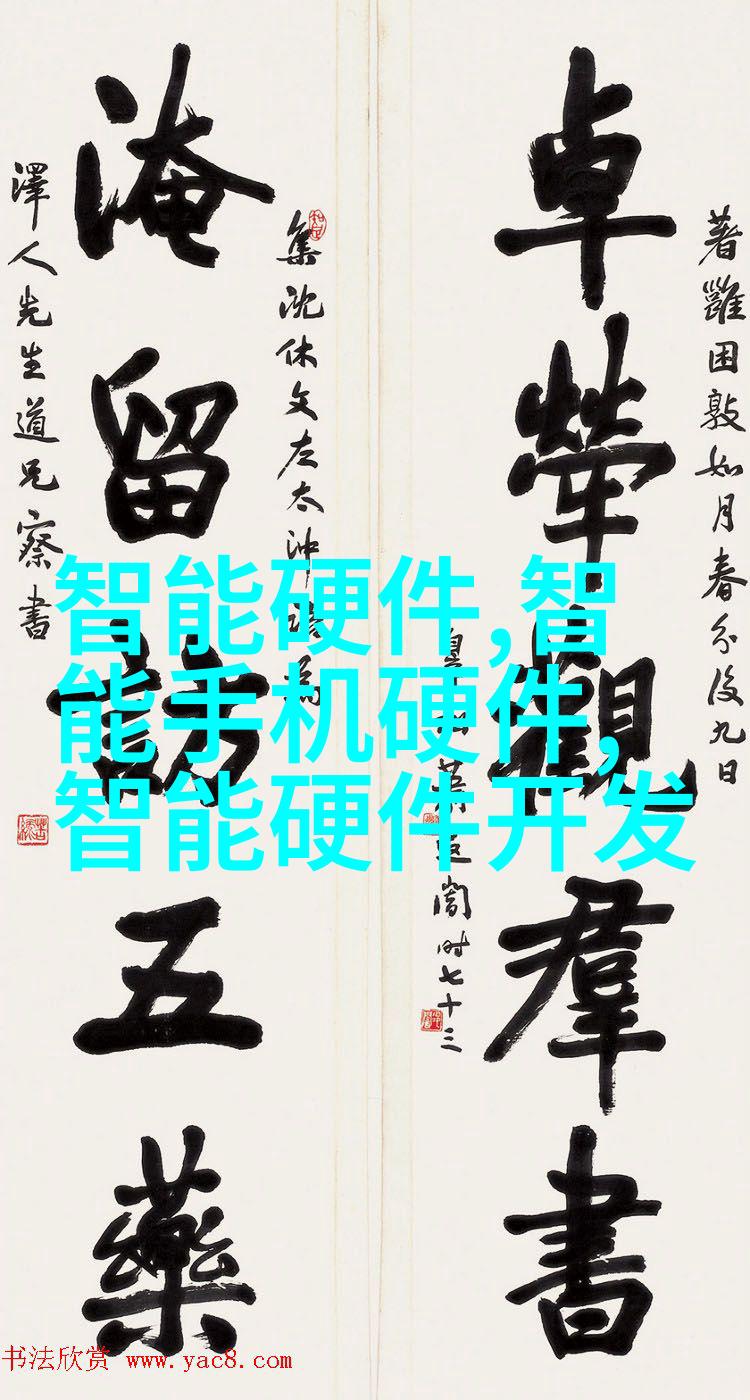 著雝困敦如月春分後九日
卓犖觀羣書
时七十三
集沈休文左太沖語為
淹留訪五藥
澤人先生道兄察書
智能硬件,智
能手机硬件,
智能硬件开发
书法欣赏 www.yac8.com